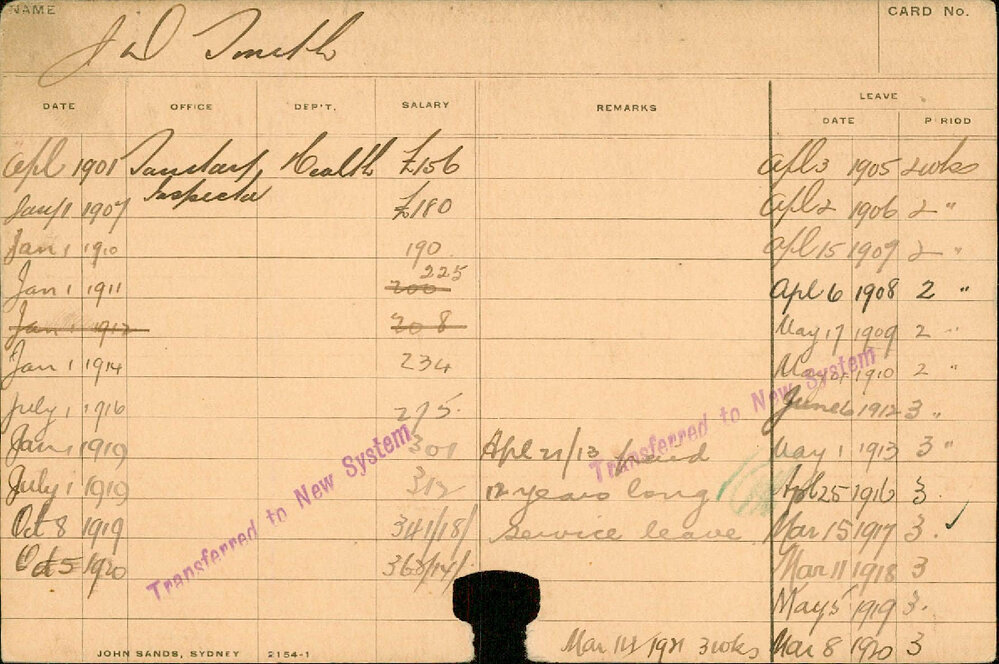 NAME
CARD No.
J W Smith
DATE OFFICE DEP'T. SALARY REMARKS LEAVE
DATE P RIOD
Apl 1901 Sanitary Health £156 Apl 3 1905 2 wks
Inspector
Jany 1 1907 £180 Apl 2 1906 2 "
Jan 1 1910 190 Apl 15 1907 2 "
Jan 1 1911 200 225 Apl 6 1908 2 "
Jan 1 1912 208 May 17 1909 2 "
Jan 1 1914 234 1910 2 "
July 1 1916 275. June 6 1912 3 "
Jan 1 1919 301 Apl 21/13 paid May 1 1913 3 "
July 1 1919 312 12 years long Apl 25 1916 3.
Oct 8 1919 341/18/ Service leave Mar 15 1917 3. ✓
Oct 5 1920 363/14/ Mar 11 1918 3
May 5 1919 3.
Mar 14 1921 3 wks Mar 8 1920 3
Transferred to New System
Transferred to New System
JOHN SANDS, SYDNEY 2154-1